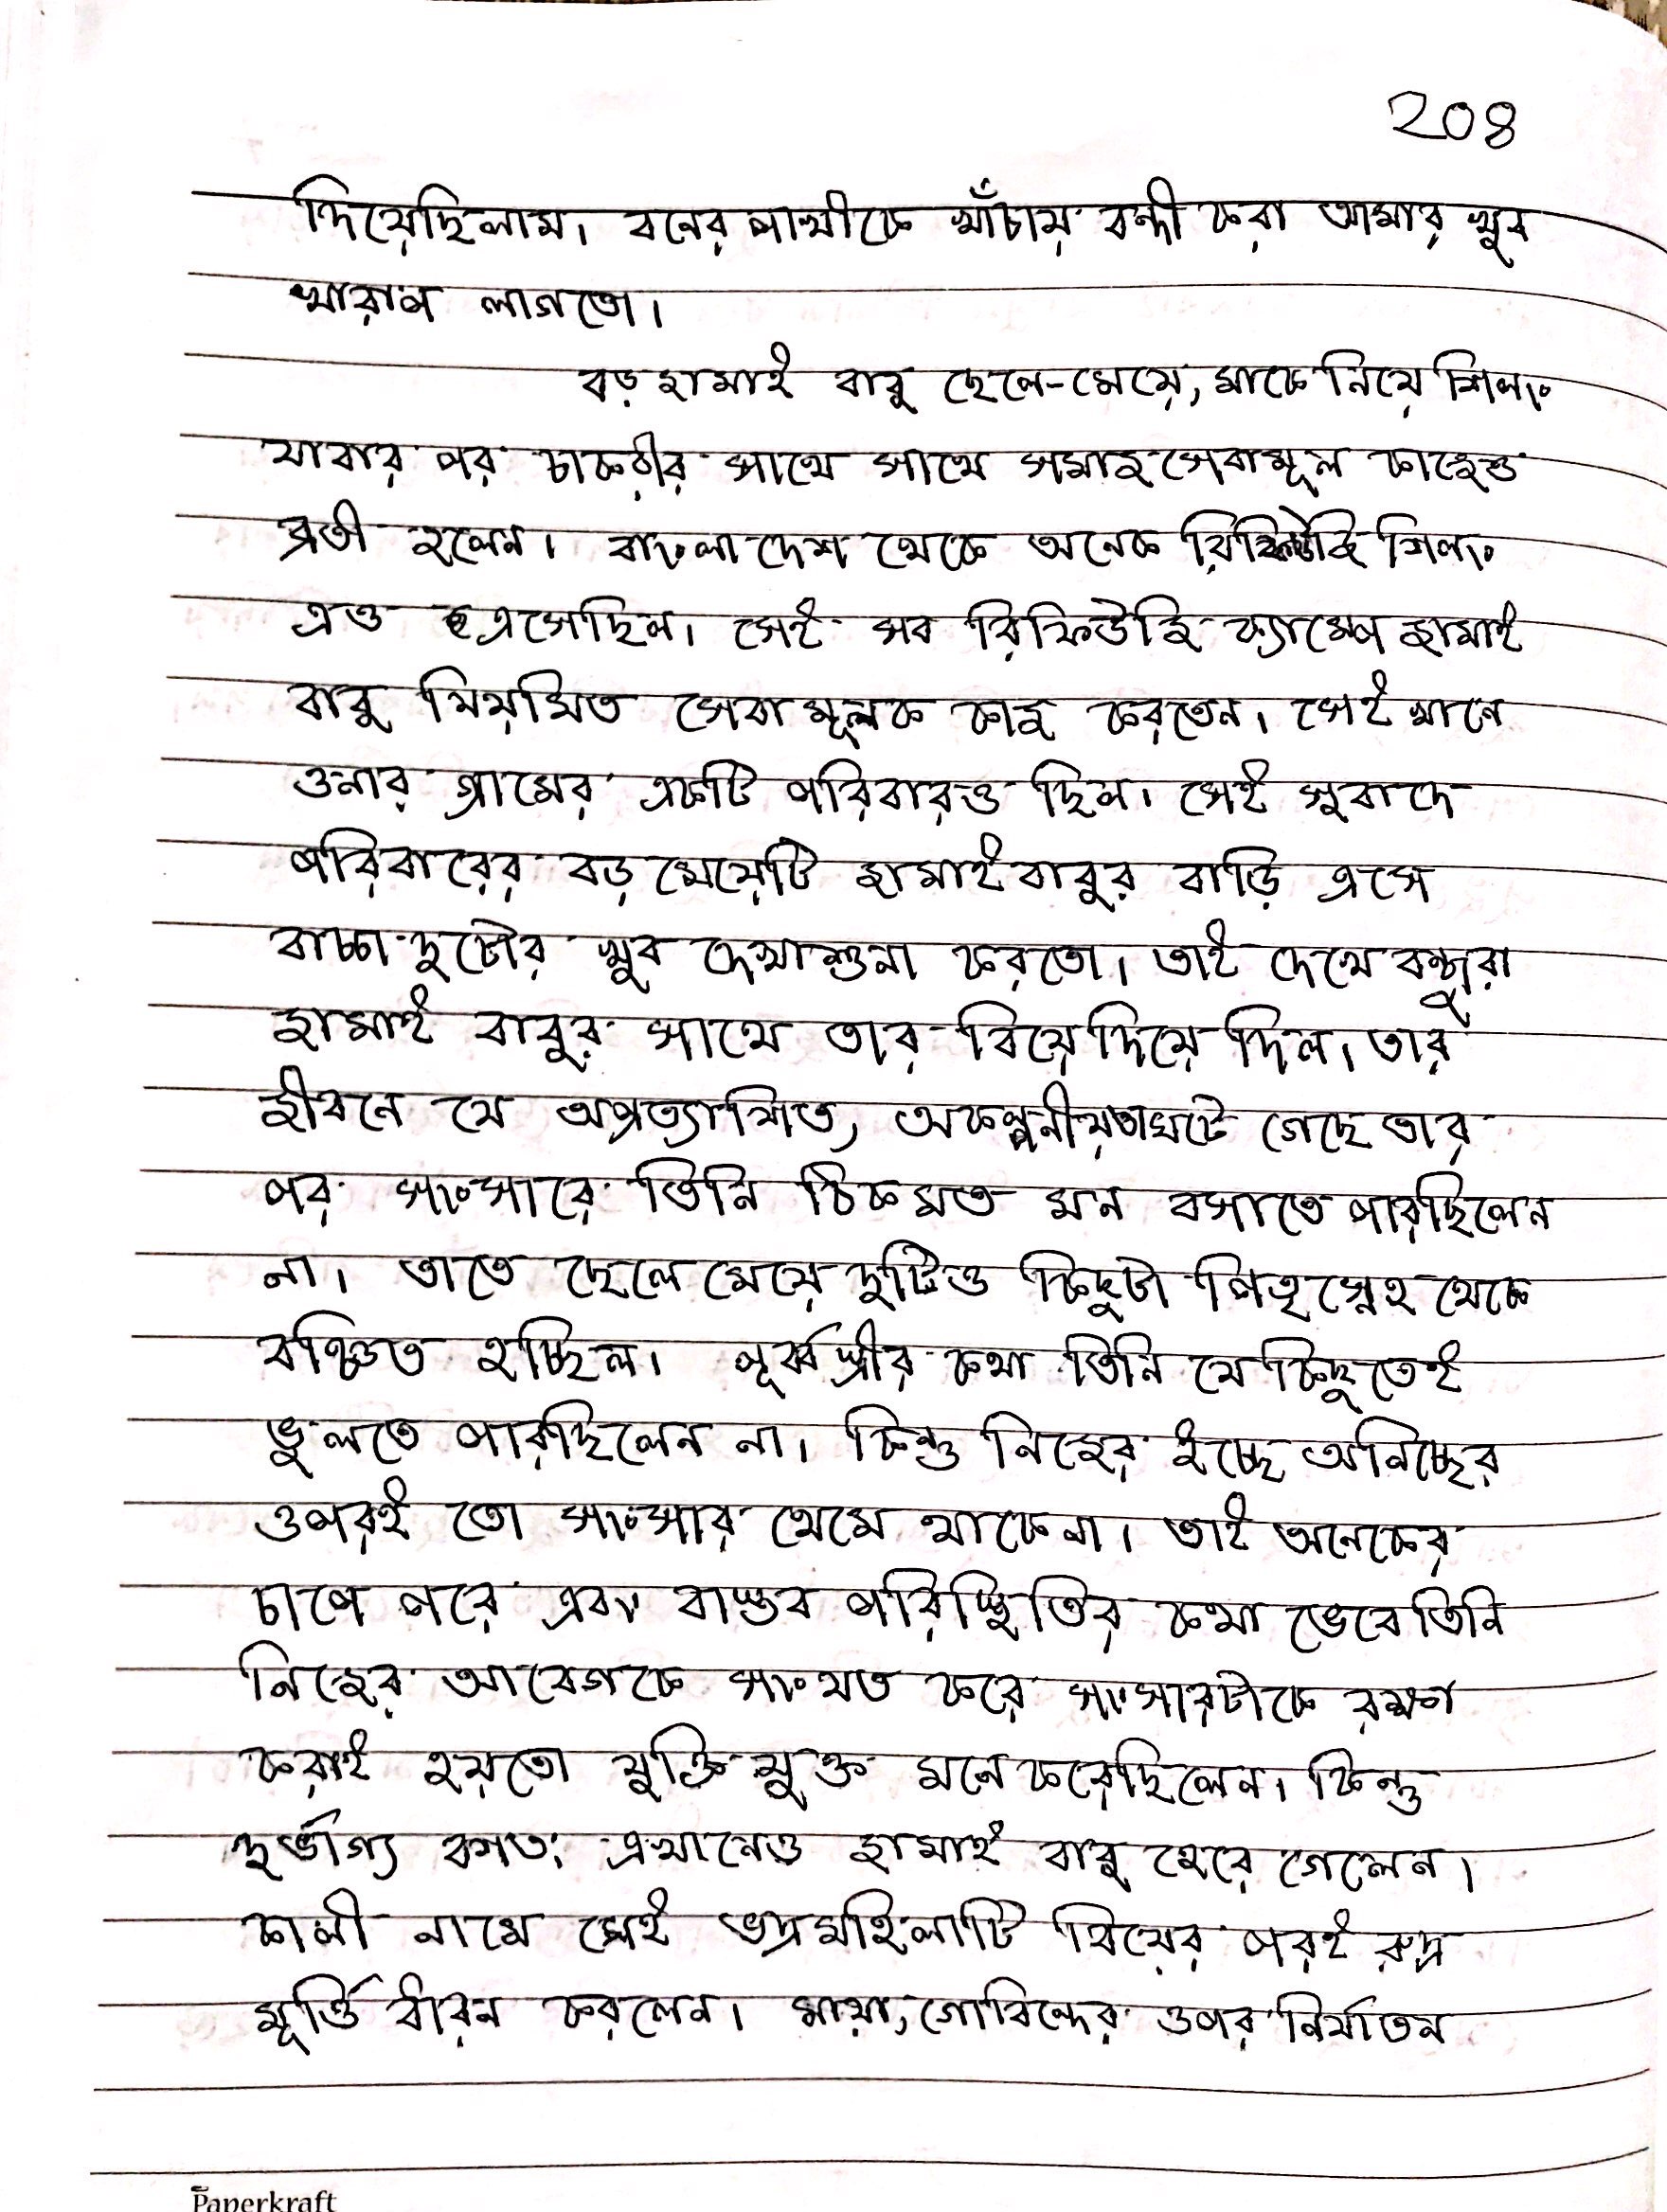 208
দিয়েছিলাম। বনের পাখীকে খাঁচায় বন্দী করা আমার খুব
খারাপ লাগতো।
বড়জামাই বাবু ছেলে-মেয়ে, মাকে নিয়ে শিলং
যাবার পর চাকরীর সাথে সাথে সমাজসেবামূল কাজেও
ব্রতী হলেন। বাংলাদেশ থেকে অনেক রিফিউজি শিলং
এও এসেছিল। সেই সব রিফিউজি ক্যাম্পে জামাই
বাবু নিয়মিত সেবামূলক কাজ করতেন। সেইখানে
ওনার গ্রামের একটি পরিবারও ছিল। সেই সুবাদে
পরিবারের বড় মেয়েটি জামাইবাবুর বাড়ি এসে
বাচ্চা দুটোর খুব দেখাশুনা করতো। তাই দেখে বন্ধুরা
জামাই বাবুর সাথে তার বিয়ে দিয়ে দিল। তার
জীবনে যে অপ্রত্যাশিত, অকল্পনীয়তা ঘটে গেছে তার
পর সাংসারে তিনি ঠিকমত মন বসাতে পারছিলেন
না। তাতে ছেলে মেয়ে দুটিও কিছুটা পিতৃস্নেহ থেকে
বঞ্চিত হচ্ছিল। পূর্বস্ত্রীর কথা তিনি যে কিছুতেই
ভুলতে পারছিলেন না। কিন্তু নিজের ইচ্ছে অনিচ্ছের
ওপরই তো সাংসার থেমে থাকেনা। তাই অনেকের
চাপে পরে এবং বাস্তব পরিস্থিতির কথা ভেবে তিনি
নিজের আবেগকে সাংযত করে সংসারটাকে রক্ষা
করাই হয়তো যুক্তি যুক্ত মনে করেছিলেন। কিন্তু
দুর্ভাগ্য বশত: এখানেও জামাই বাবু হেরে গেলেন।
কালী নামে সেই ভদ্রমহিলাটি বিয়ের পরই রুদ্র
মূর্ত্তি ধারন করলেন। মায়া, গোবিন্দের ওপর নির্যাতন
Paperkraft